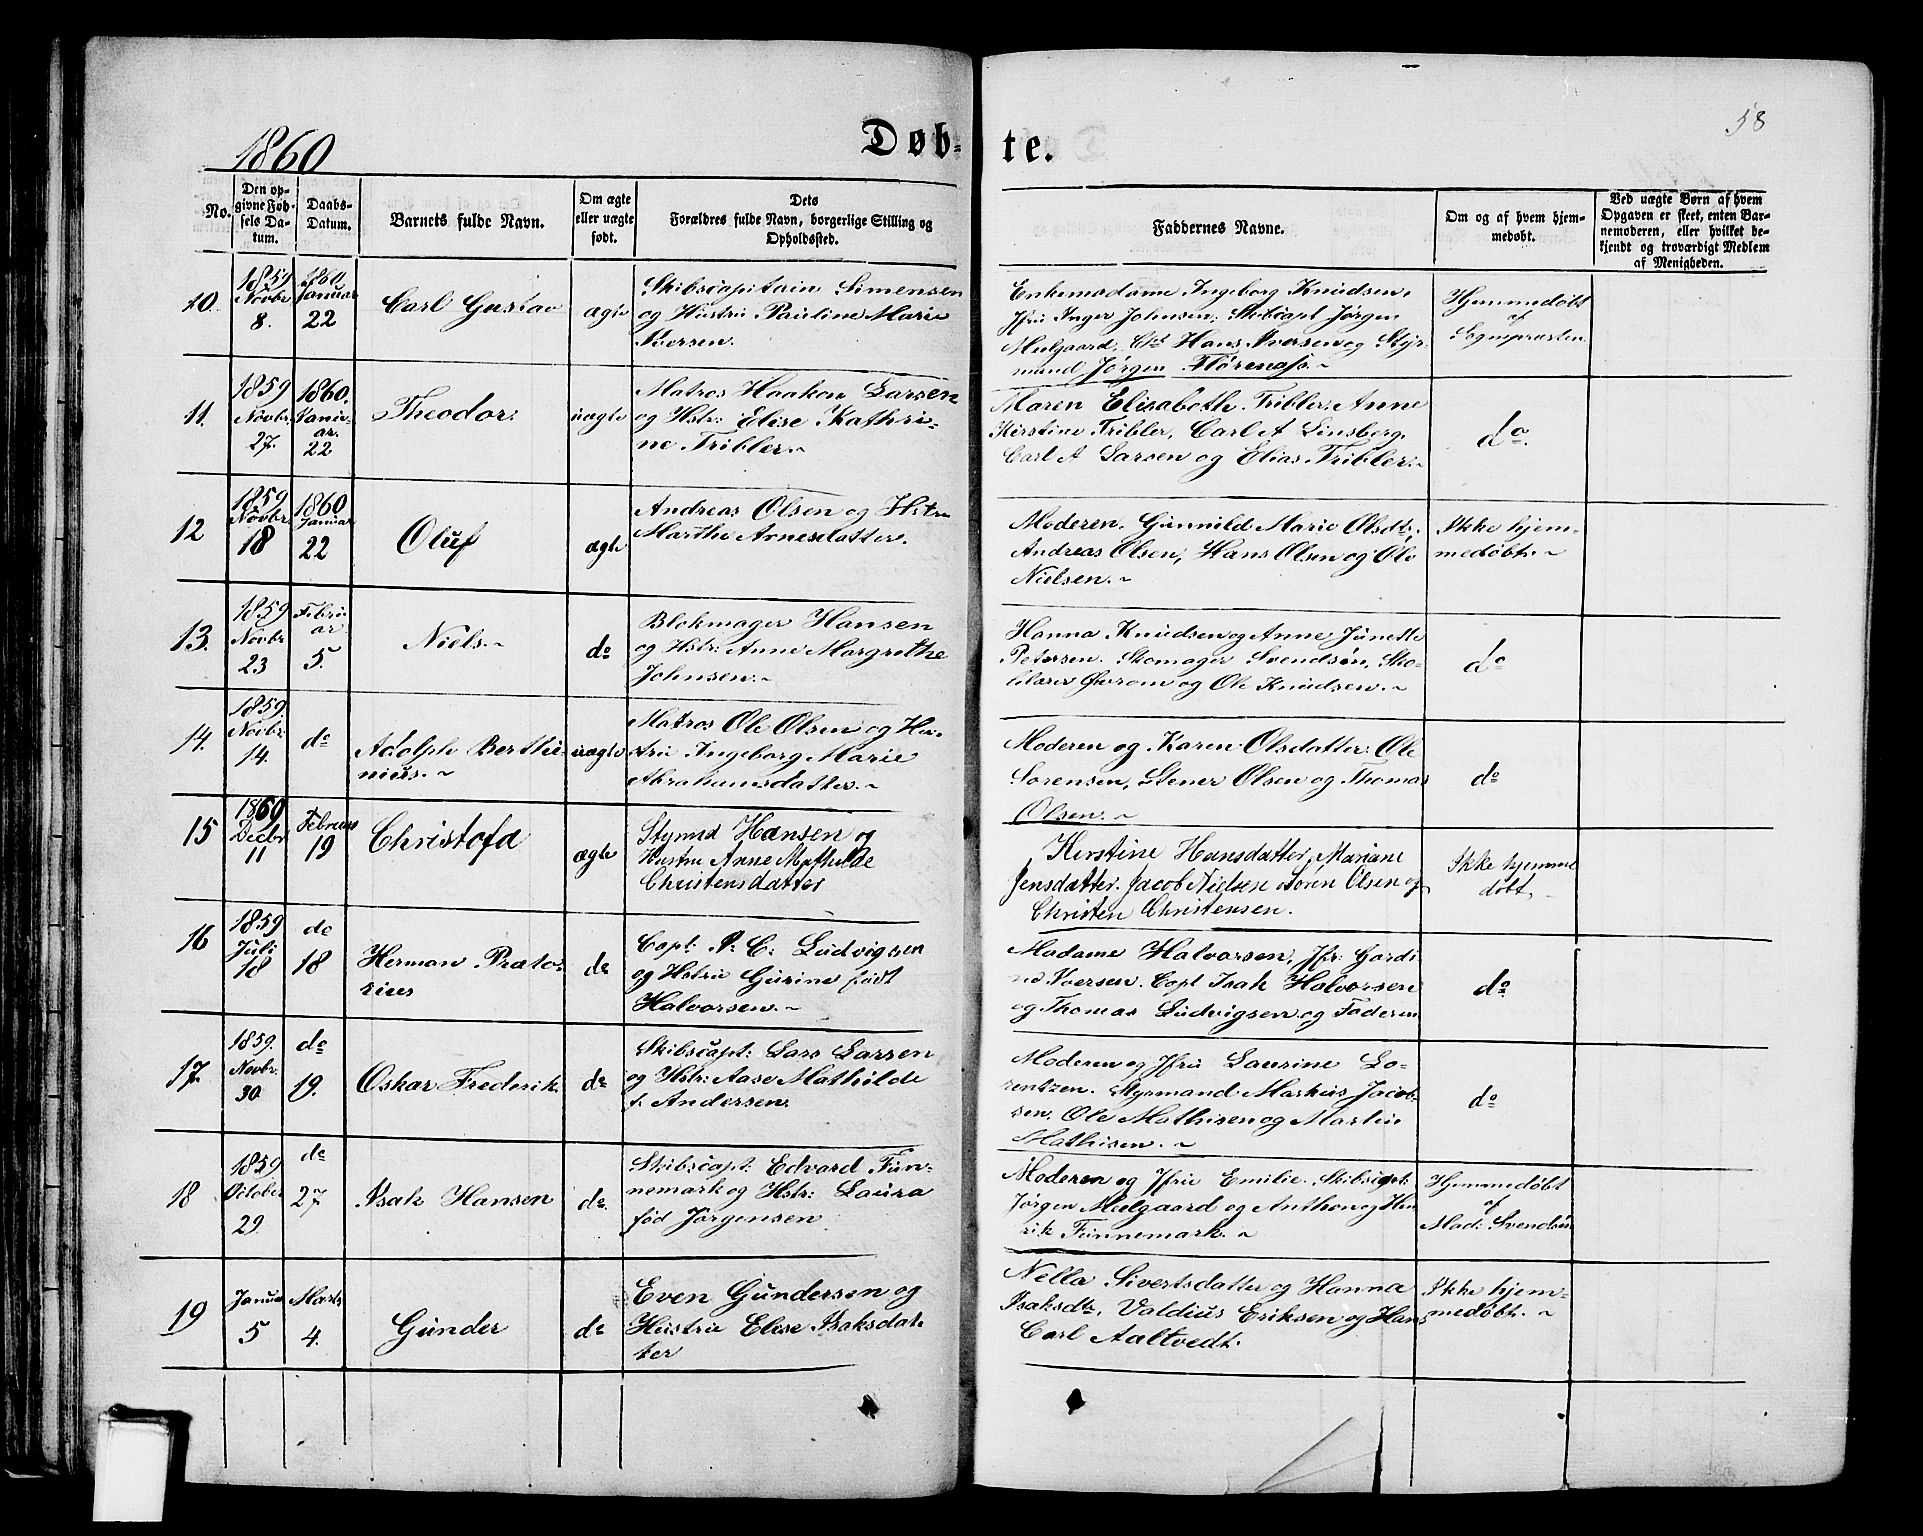 1860
Døb-
te.
58
No.
Den op-
givne Fød-
sels Da-
tum.
Daabs-
Datum.
Barnets fulde Navn.
Om ægte
eller uægte
født.
Dets
Forældres fulde Navn, borgerlige Stilling og
Opholdssted.
Faddernes Navne.
Om og af hvem hjem-
medøbt.
Ved uægte Børn af hvem
Opgaven er skeet, enten Bar-
nemoderen, eller hvilket be-
kjendt og troværdigt Medlem
af Menigheden.
10.
1859
Novbr
8.
1860
Januar
22
Carl Gustav
ægte
Skibscapitain Simensen
og Hustru Pauline Marie
Iversen.
Enkemadame Ingeborg Knudsen,
Jfru Inger Johnsen, Skibcapt Jørgen
Melgaard, Hans Iversen og Styr-
mand Jørgen
Hjemmedøbt
af
Sognpræsten
11.
1859
Novbr.
27.
1860.
Janu-
ar.
22
Theodor.
uægte
Matros Haakon Larsen
og Hstr: Elise Kathri-
ne Tribler.
Maren Elisabeth Tribler. Anne
Kirstine Tribler, Carl A Linsberg,
Carl A Larsen og Elias Tribler.
do.
12
1859
Novbr.
18
1860
Januar
22
Oluf
ægte
Andreas Olsen og Hstr
Marthe Arnesdatter.
Moderen, Gunnild Marie Olsdtr,
Andreas Olsen, Hans Olsen og Ole
Nielsen.
Ikke hjem-
medøbt.
13.
1859
Novbr
23
Febru
ar
5.
Niels.
do
Blokmager Hansen
og Hstr: Anne Margrethe
Johnsen.
Hanna Knudsen og Anne Junette
Petersen. Skomager Svendsen, Sko-
lelærer og Ole Knudsen.
do
14.
1859
Novbr.
14.
do
Adolph Berthi-
nius.
uægte
Matros Ole Olsen og Hu-
stru Ingeborg Marie
Abrahamsdatter.
Moderen og Karen Olsdatter. Ole
Sørensen, Stener Olsen og Thomas
Olsen.
do
15
1860
Decbr
11
Februar
19
Christofa
ægte
Stymd Hansen og
Hustru Anne Mathilde
Christensdatter
Kirstine Hansdatter, Mariane
Jensdatter. Jacob Nielsen Søren Olsen og
Christen Christensen.
Ikke hjemme
døbt.
16
1859
Juli
18
do
18
Herman Præto-
rius
do
Capt: P. C. Ludvigsen
og Hstru Gurine født
Halvorsen.
Madame Halvorsen, Jfr: Gardi
ne Iversen. Capt Isak Halvorsen
og Thomas Ludvigsen og Faderen
do.
17.
1859.
Novbr.
30.
do
19.
Oskar Frederik.
do
Skibscapt: Lars Larsen
og Hstr: Aase Mathilde
f. Andersen.
Moderen og Jfru Laurine Lo-
rentzen. Styrmand Markus Jacob-
sen. Ole Mathisen og Martin
Mathisen.
do
18
1859
October
29.
do
27
Isak Hansen
do.
Skibscapt: Edvard Fun-
nemark og Hstr: Laura
fød Jørgensen
Moderen og Jfru Emilie. Skibscpt:
Jørgen Melgaard og Anthon og Hen
rik Funnemark.
Hjemmedøbt
af
Mad: Svendsen
19
Januar
5
Marts
4.
Gunder
do
Even Gundersen og
Hustru Elise Isaksdat-
ter
Nella Sivertsdatter og Hanna
Isaksdtr, Valdius Eriksen og Hans
Carl Aaltvedt.
Ikke hjem-
medøbt.